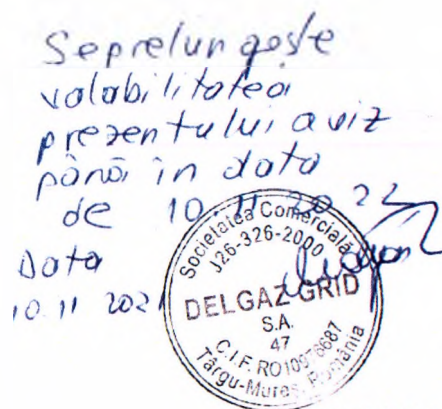 Seprelungește
valabilitatea
prezentului aviz
până în data
de 10.11.2022
Data
10.11 2021
Societatea Comercială
J26-326-2000
DELGAZ GRID
S.A.
47
C.I.F. RO10976687
Târgu-Mureș, România